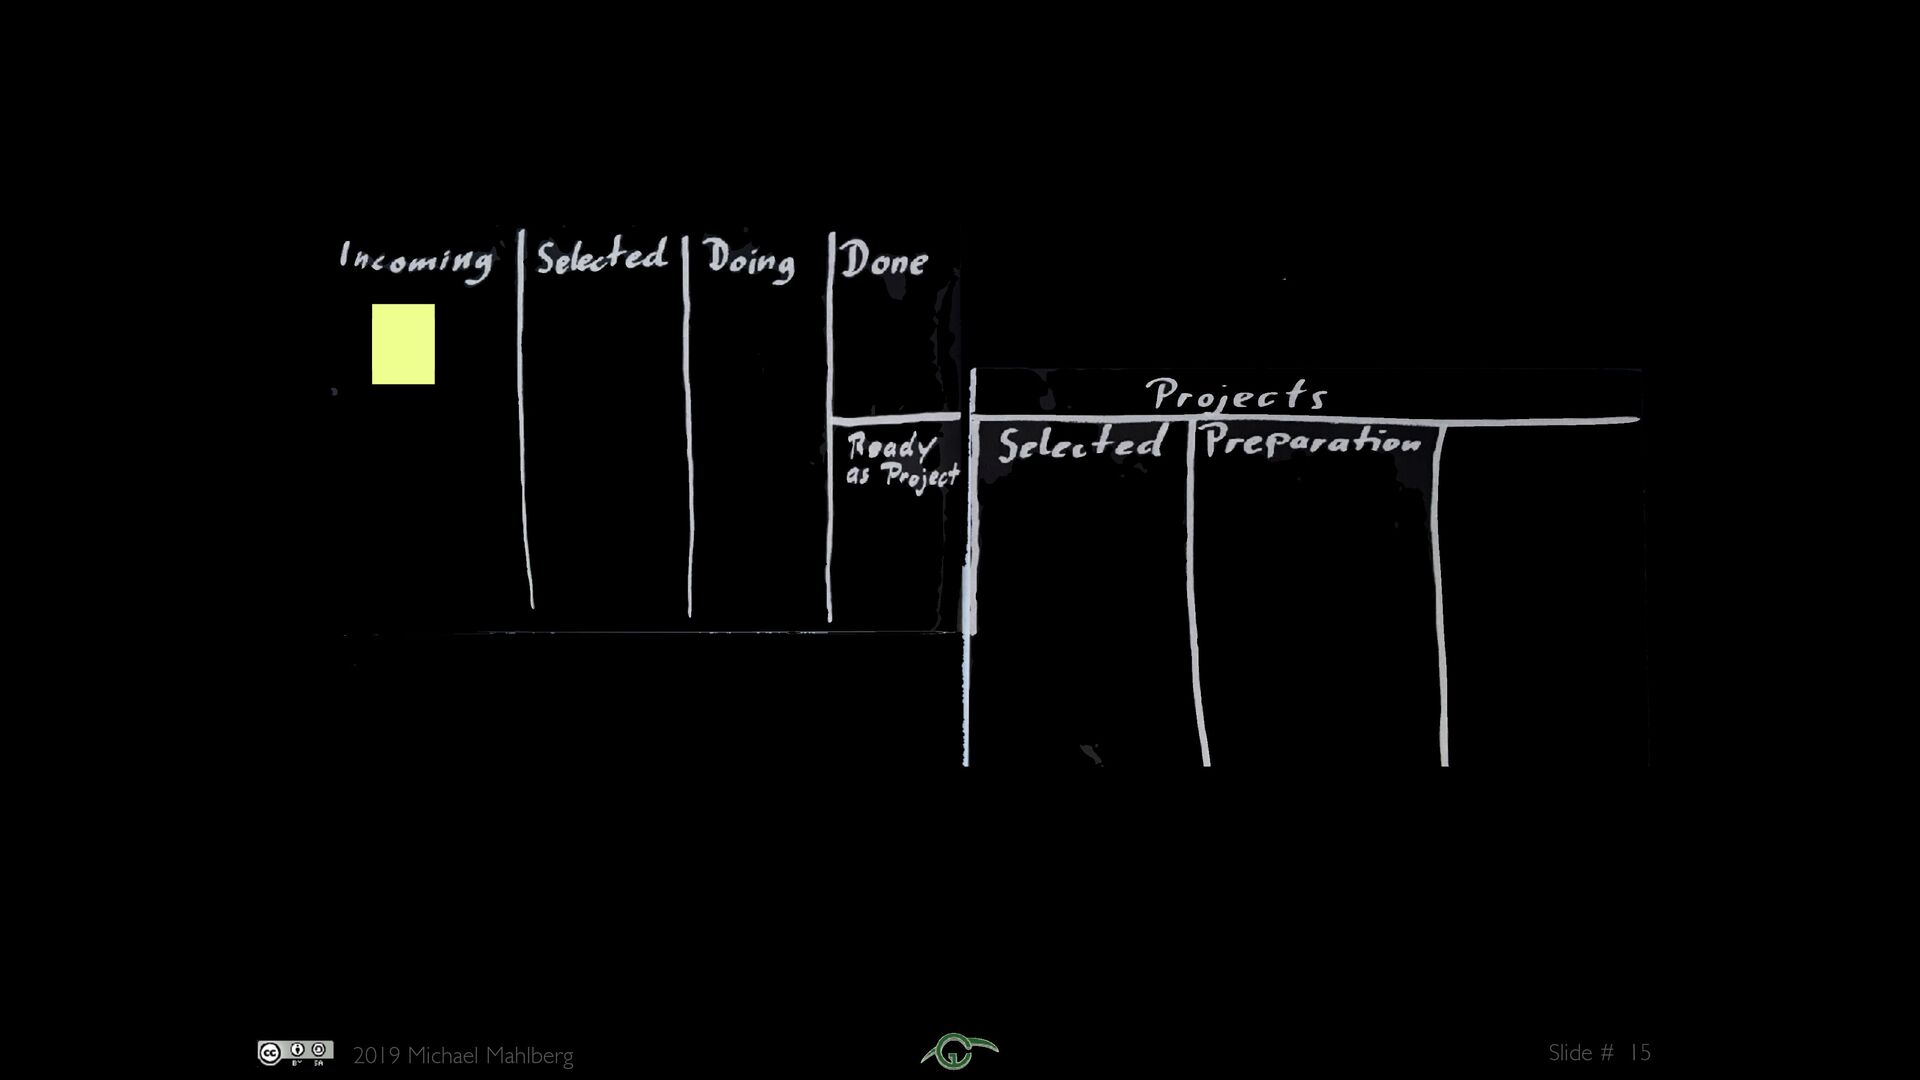 Incoming
Selected
Doing
Done
Projects
Ready
as Project
Selected
Preparation
cc
BY SA
2019 Michael Mahlberg
Slide # 15